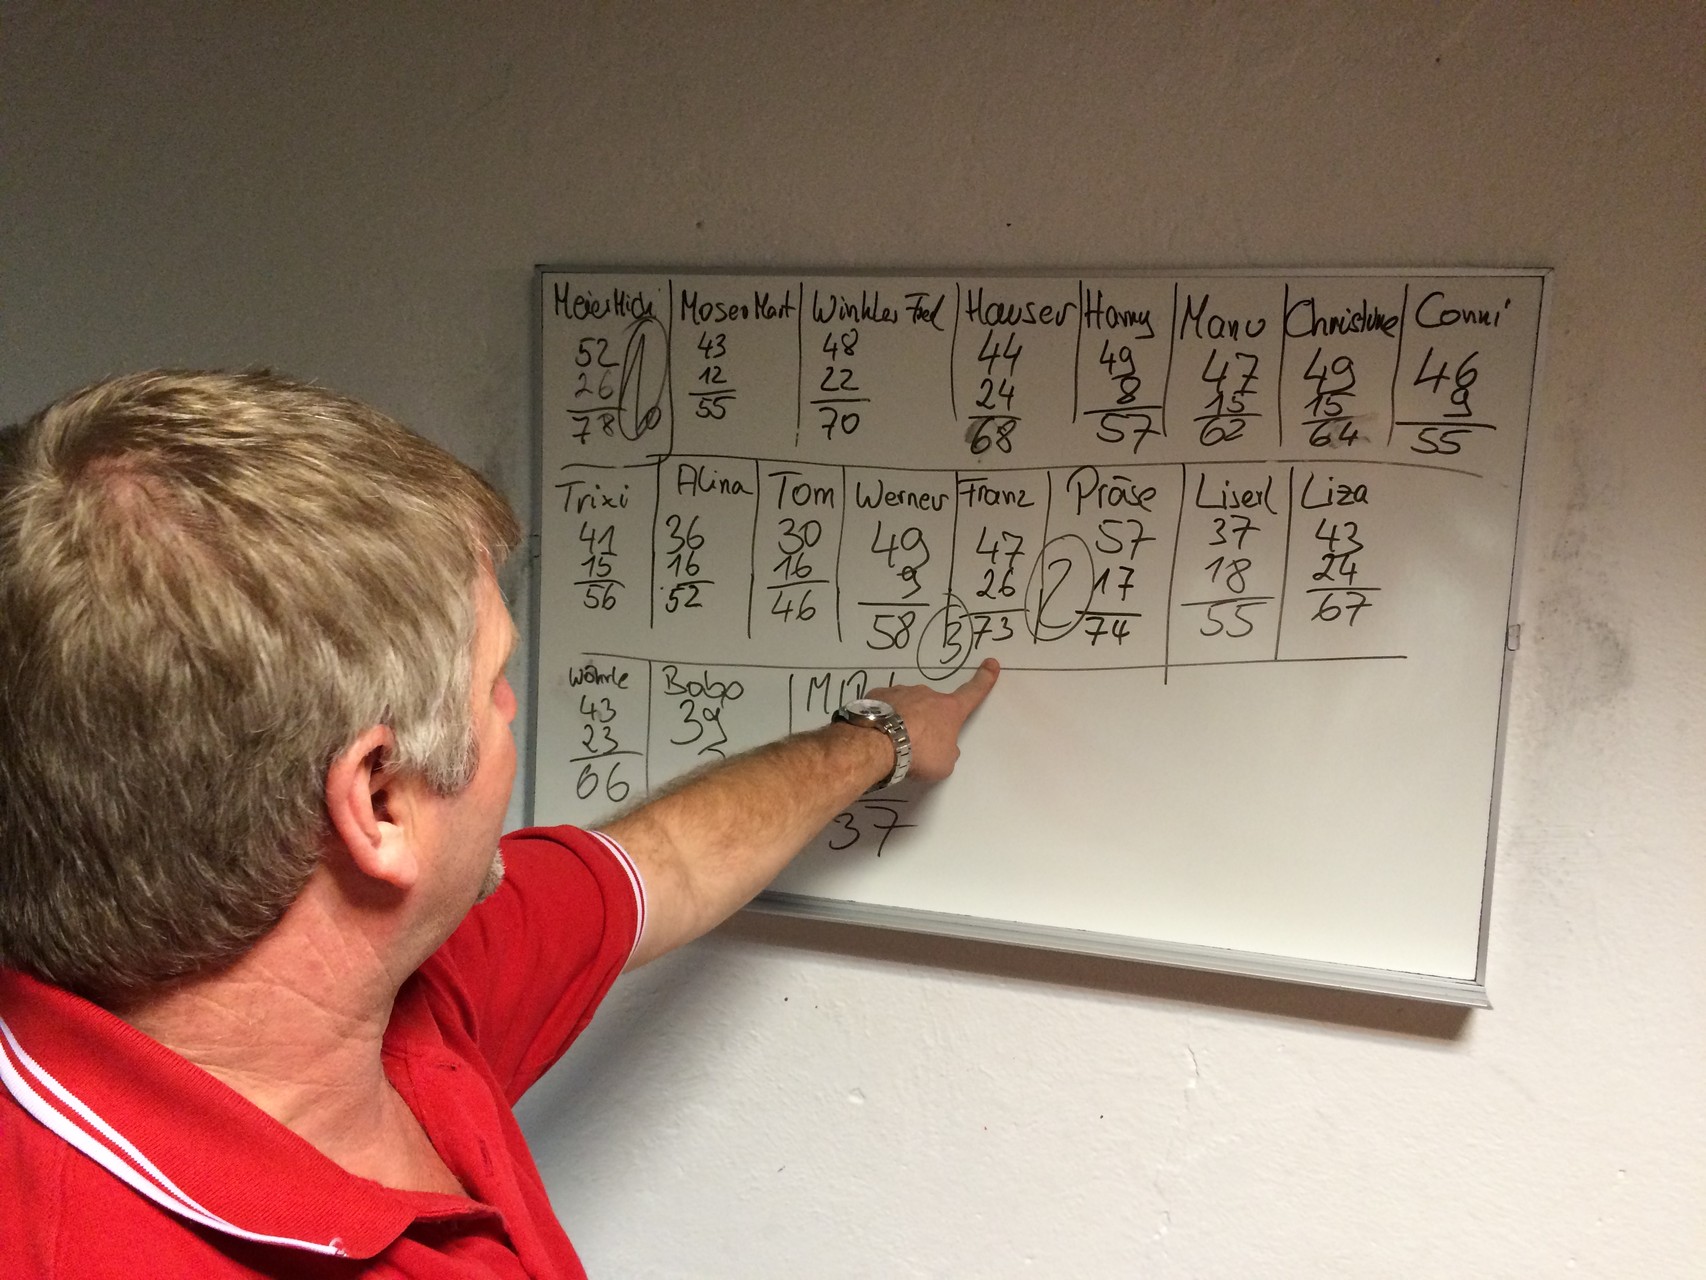 Meier Michi Moser Mart Winkler Fred Hauser Harry Manu Christine Conni
52 43 48 44 49 47 49 46
26 12 22 24 8 15 15 9
78 1 55 70 68 57 62 64 55
Trixi Alina Tom Werner Franz Präse Liserl Liza
41 36 30 49 47 57 37 43
15 16 16 9 26 2 17 18 24
56 52 46 58 3 73 74 55 67
Wöhrle Bobo
43 39
23
66 37